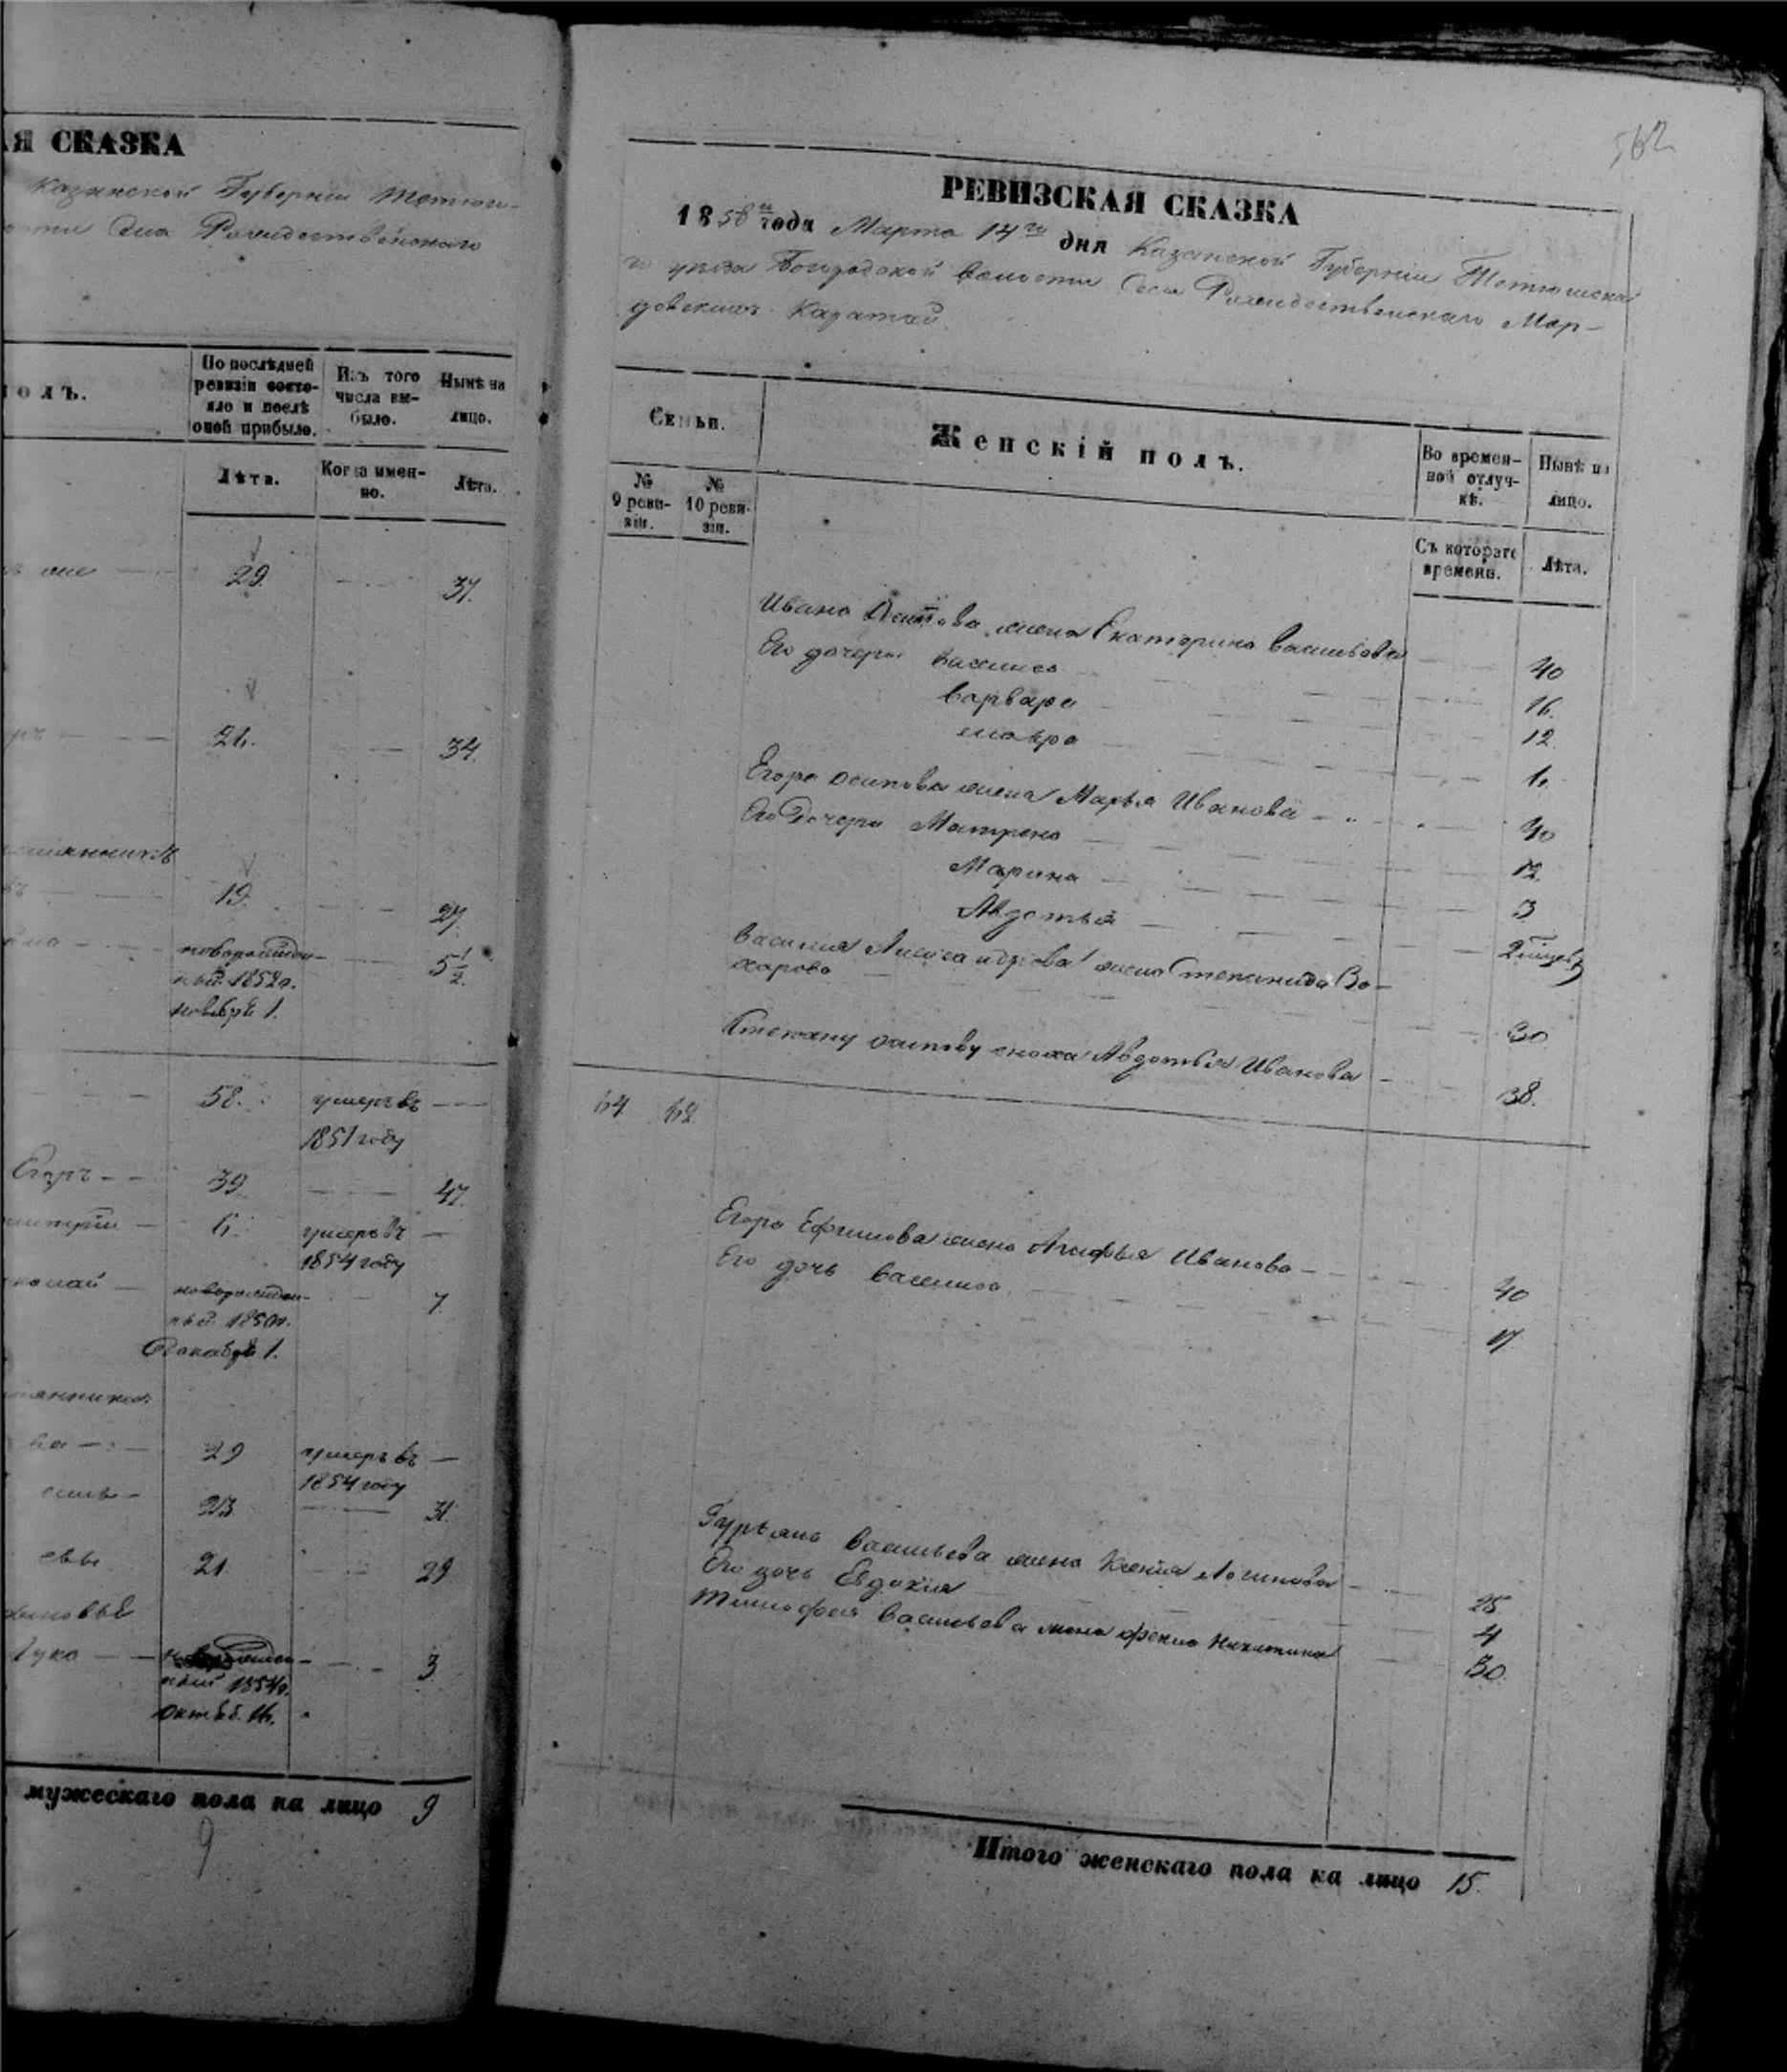 СКАЗКА
Казанской Губерніи Тетюш-
Села Рождественскаго
полъ.
По послѣдней ревизіи состо-
яло и послѣ
оной прибыло.
Изъ того
числа вы-
было.
Нынѣ на
лицо.
Лѣта.
Когда имен-
но.
Лѣта.
29. 37.
21. 34.
19. 27.
новорожден-
ный 1852 г.
ноября 1. 5 1/2
58. умеръ въ
1851 году
Егоръ 39 47.
6. умеръ въ
1854 году
новорожден-
ный 1850 г.
Декабря 1. 7.
29 умеръ въ
1854 году
23. 31.
21. 29
Лука 3.
ный 1854 г.
Октяб. 16.
мужескаго пола на лицо 9
9
562
РЕВИЗСКАЯ СКАЗКА
1858 года Марта 14го дня Казанской Губерніи Тетюшска
го уѣзда Богородской волости Села Рождественскаго Мор-
довскихъ Каратай.
Семьи.
Женскій полъ.
Во времен-
ной отлуч-
кѣ.
Нынѣ на
лицо.
№
9 реви-
зіи.
№
10 реви-
зіи.
Съ котораго
времени.
Лѣта.
Ивана Осипова жена Екатерина Васильева 40
Его дочери Василиса 16.
Варвара 12.
Мавра 1.
Егора Осипова жена Марья Иванова 40
Его Дочери Матрена 12.
Марина 3
Авдотья
Василія Александрова жена Степанида За-
харова 30
Степану Осипову сноха Авдотья Иванова 38.
64 62.
Егора Ефимова жена Агафья Иванова 40
Его дочь Василиса 17.
Васильева жена Ксенія Логинова 25.
Его дочь Евдокія 4
Тимофея Васильева жена Офенія Никитина 30.
Итого женскаго пола на лицо 15.